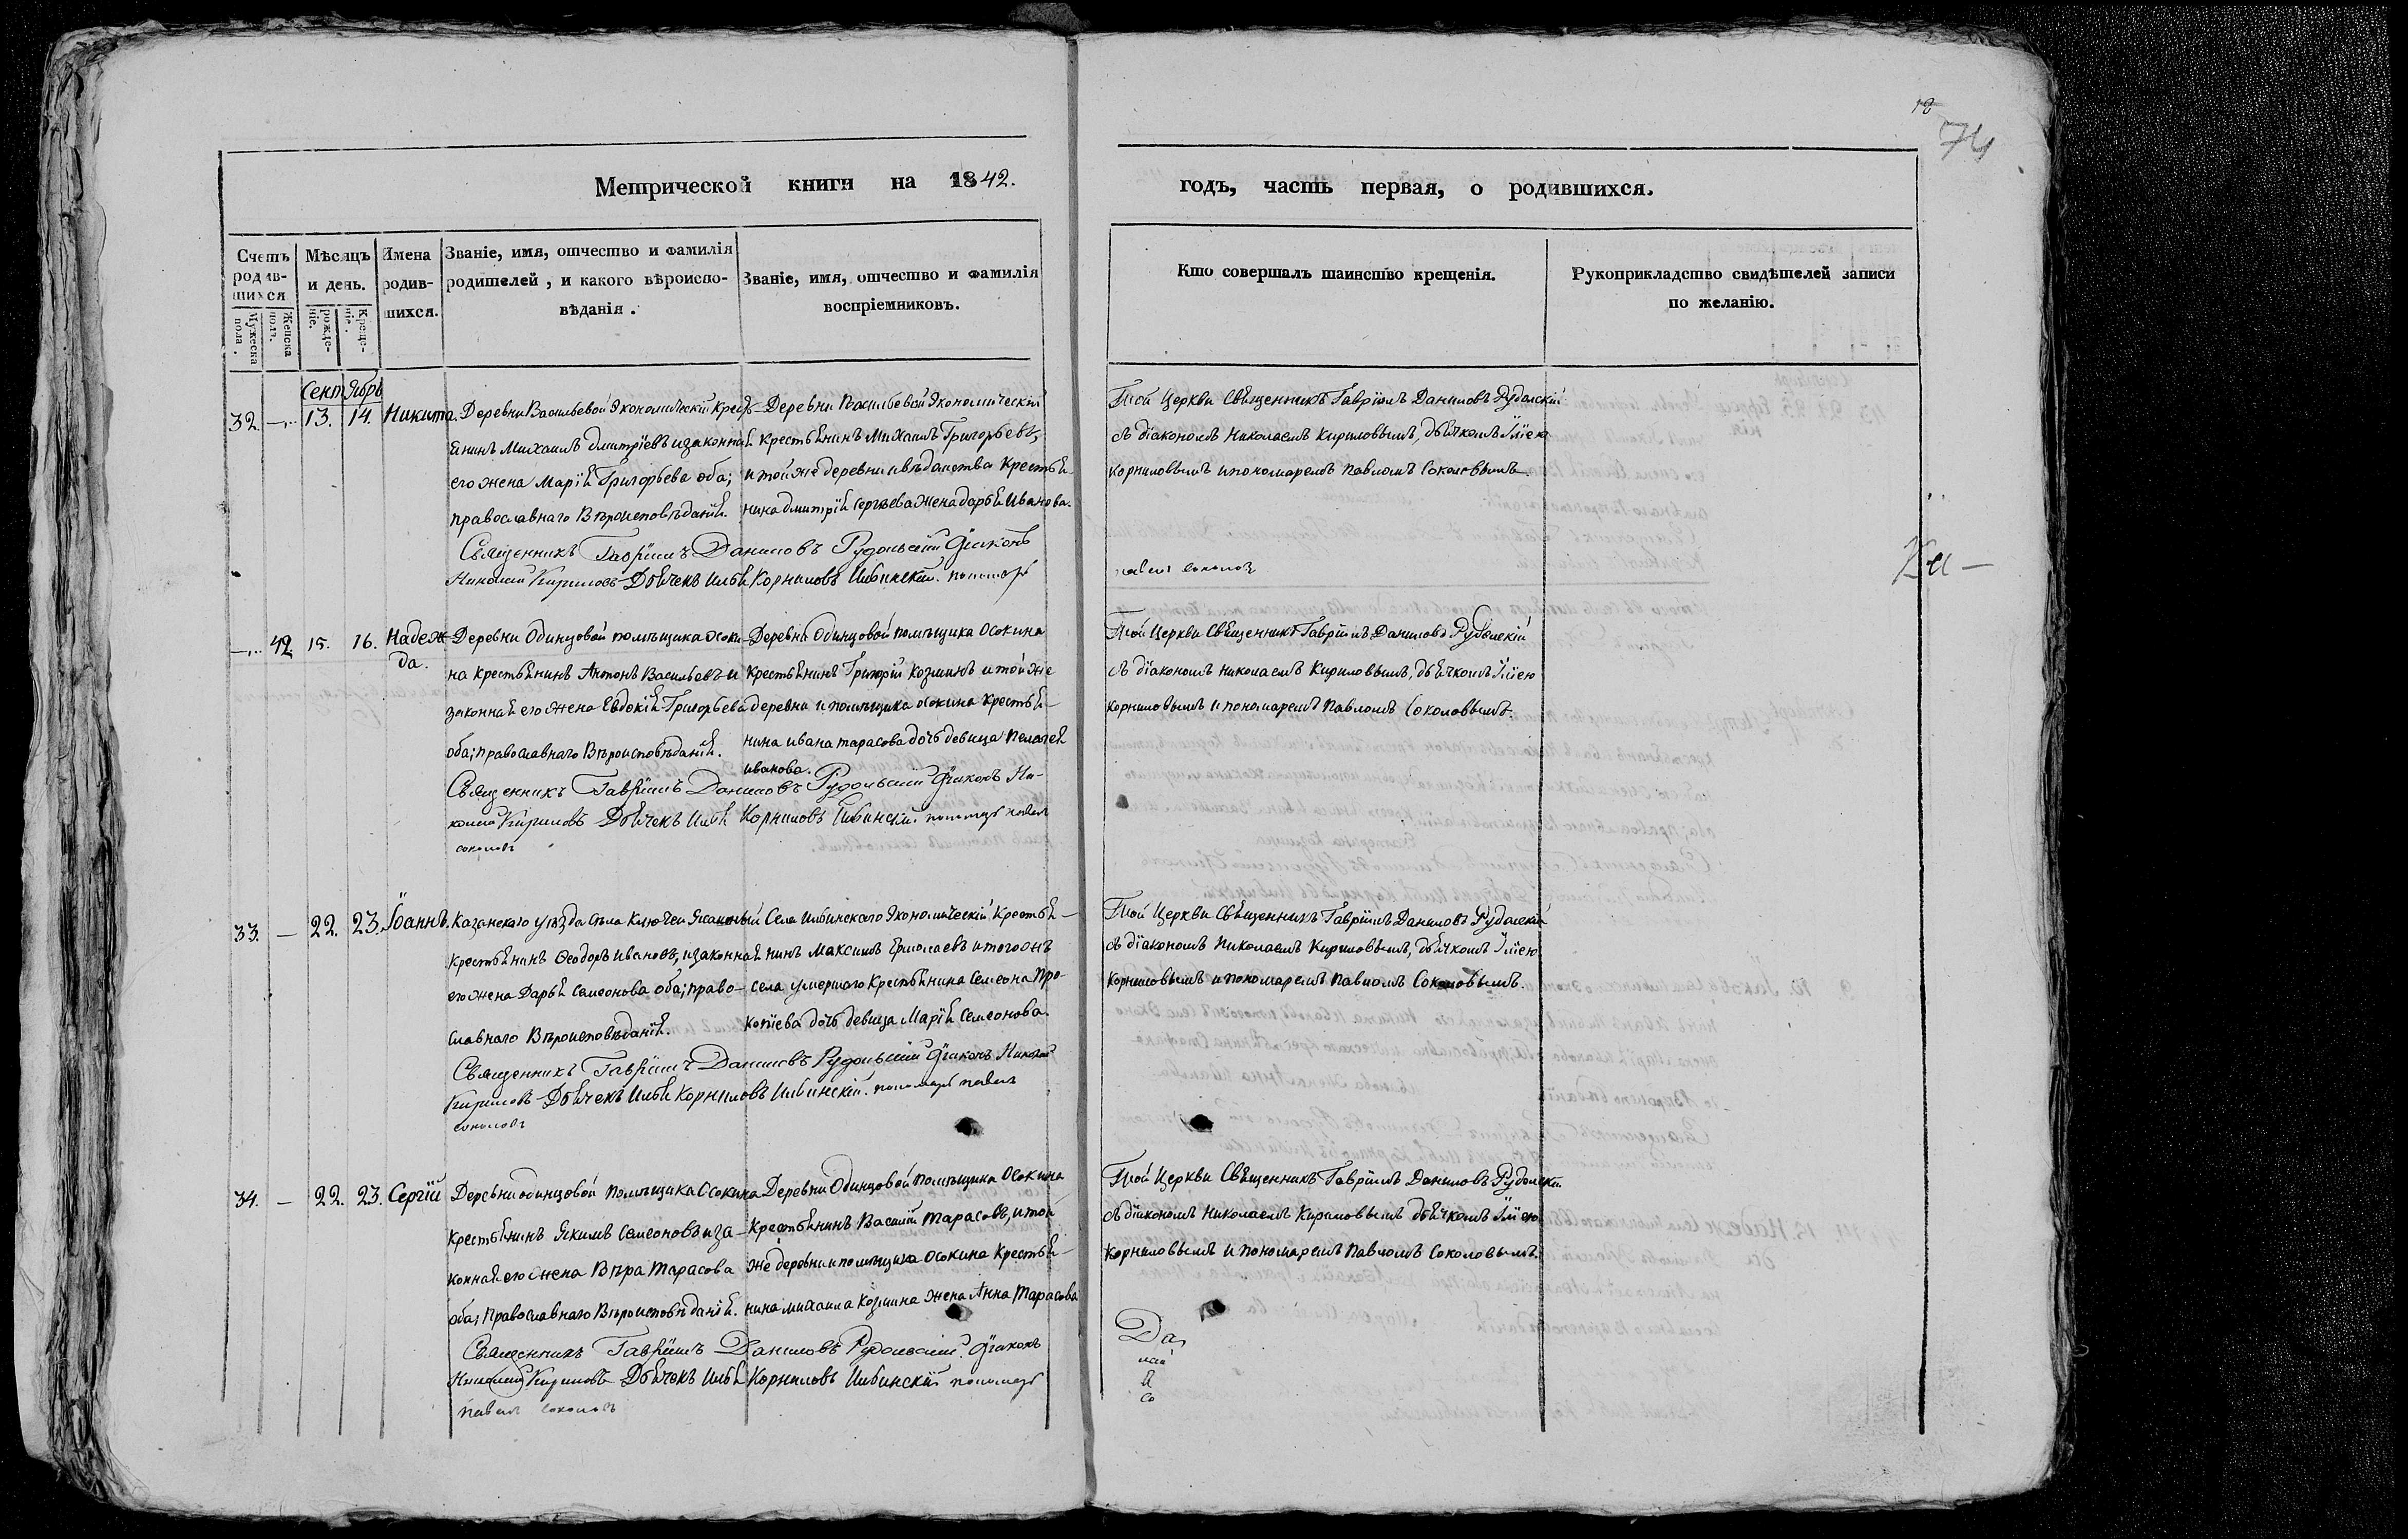 12
74
Метрической книги на 1842.
годъ, часть первая, о родившихся.
Счетъ родившихся
Мужеска пола.
Женска пола.
Мѣсяцъ и день.
рожденіе.
Крещеніе.
Имена родившихся.
Званіе, имя, отчество и фамилія
родителей, и какого вѣроиспо-
вѣданія.
Званіе, имя, отчество и фамилія
воспріемниковъ.
Кто совершалъ таинство крещенія.
Рукоприкладство свидѣтелей записи
по желанію.
Сентябрь
32. — 13. 14. Никита.
Деревни Васильевой Экономическій Крест-
янинъ Михаилъ Дмитріевъ и законная
его жена Марія Григорьева оба;
православнаго Вѣроисповѣданія.
Деревни Васильевой Экономическій
крестьянинъ Михаилъ Григорьевъ,
и той же деревни и вѣдомства Крестья-
нина Дмитрія Сергѣева жена Дарья Иванова.
Священникъ Гавріилъ Даниловъ Рудольскій Діаконъ
Николай Кириловъ Дьячекъ Илья Корниловъ Ильинскій. пономарь
павелъ соколов
Той Церкви Священникъ Гавріилъ Даниловъ Рудольскій
съ діакономъ Николаемъ Кириловымъ, дьячкомъ Иліею
корниловымъ и пономаремъ Павломъ Соколовымъ.
— 42 15. 16. Надеж-
да.
Деревни Одинцовой помѣщика Осоки-
на крестьянинъ Антонъ Васильевъ и
законная его жена Евдокія Григорьева
оба; православнаго Вѣроисповѣданія.
Деревни Одинцовой помѣщика Осокина
крестьянинъ Григорій Козминъ и той же
деревни и помѣщика Осокина крестья-
нина Ивана Тарасова дочь девица Пелагея
Иванова.
Священникъ Гавріилъ Даниловъ Рудольскій Діаконъ Ни-
колай Кириловъ Дьячекъ Илья Корниловъ Ильинскій. пономарь павел
соколовъ
Той Церкви Священникъ Гавріилъ Даниловъ Рудольскій
съ діакономъ Николаемъ Кириловымъ, дьячкомъ Иліею
корниловымъ и пономаремъ Павломъ Соколовымъ.
33. — 22. 23. Іоаннъ.
Казанскаго уѣзда села Ключей
крестьянинъ Ѳеодоръ Ивановъ, и законная
его жена Дарья Семеонова оба; право-
славнаго Вѣроисповѣданія.
Села Ильинскаго Экономическій Крестья-
нинъ Максимъ Ермолаевъ и того жъ
села умершаго Крестьянина Семеона Про-
копіева дочь девица Марія Семеонова.
Священникъ Гавріилъ Даниловъ Рудольскій Діаконъ Николай
Кириловъ Дьячекъ Илья Корниловъ Ильинскій. пономарь павел
соколовъ
Той Церкви Священникъ Гавріилъ Даниловъ Рудольскій
съ діакономъ Николаемъ Кириловымъ, дьячкомъ Иліею
Корниловымъ и пономаремъ Павломъ Соколовымъ.
34. — 22. 23. Сергій
Деревни одинцовой помѣщика Осокина
крестьянинъ Якимъ Семеоновъ и за-
конная его жена Вѣра Тарасова
оба; Православнаго Вѣроисповѣданія.
Деревни Одинцовой помѣщика Осокина
крестьянинъ Василій Тарасовъ, и той
же деревни и помѣщика Осокина крестья-
нина Михаила Козмина жена Анна Тарасова
Священникъ Гавріилъ Даниловъ Рудольскій. Діаконъ
Николай Кириловъ Дьячекъ Илья Корниловъ Ильинскій пономарь
павелъ соколовъ
Той Церкви Священникъ Гавріилъ Даниловъ Рудольскій
съ діакономъ Николаемъ Кириловымъ дьячкомъ Иліею
Корниловымъ и пономаремъ Павломъ Соколовымъ.
Да
Я
со